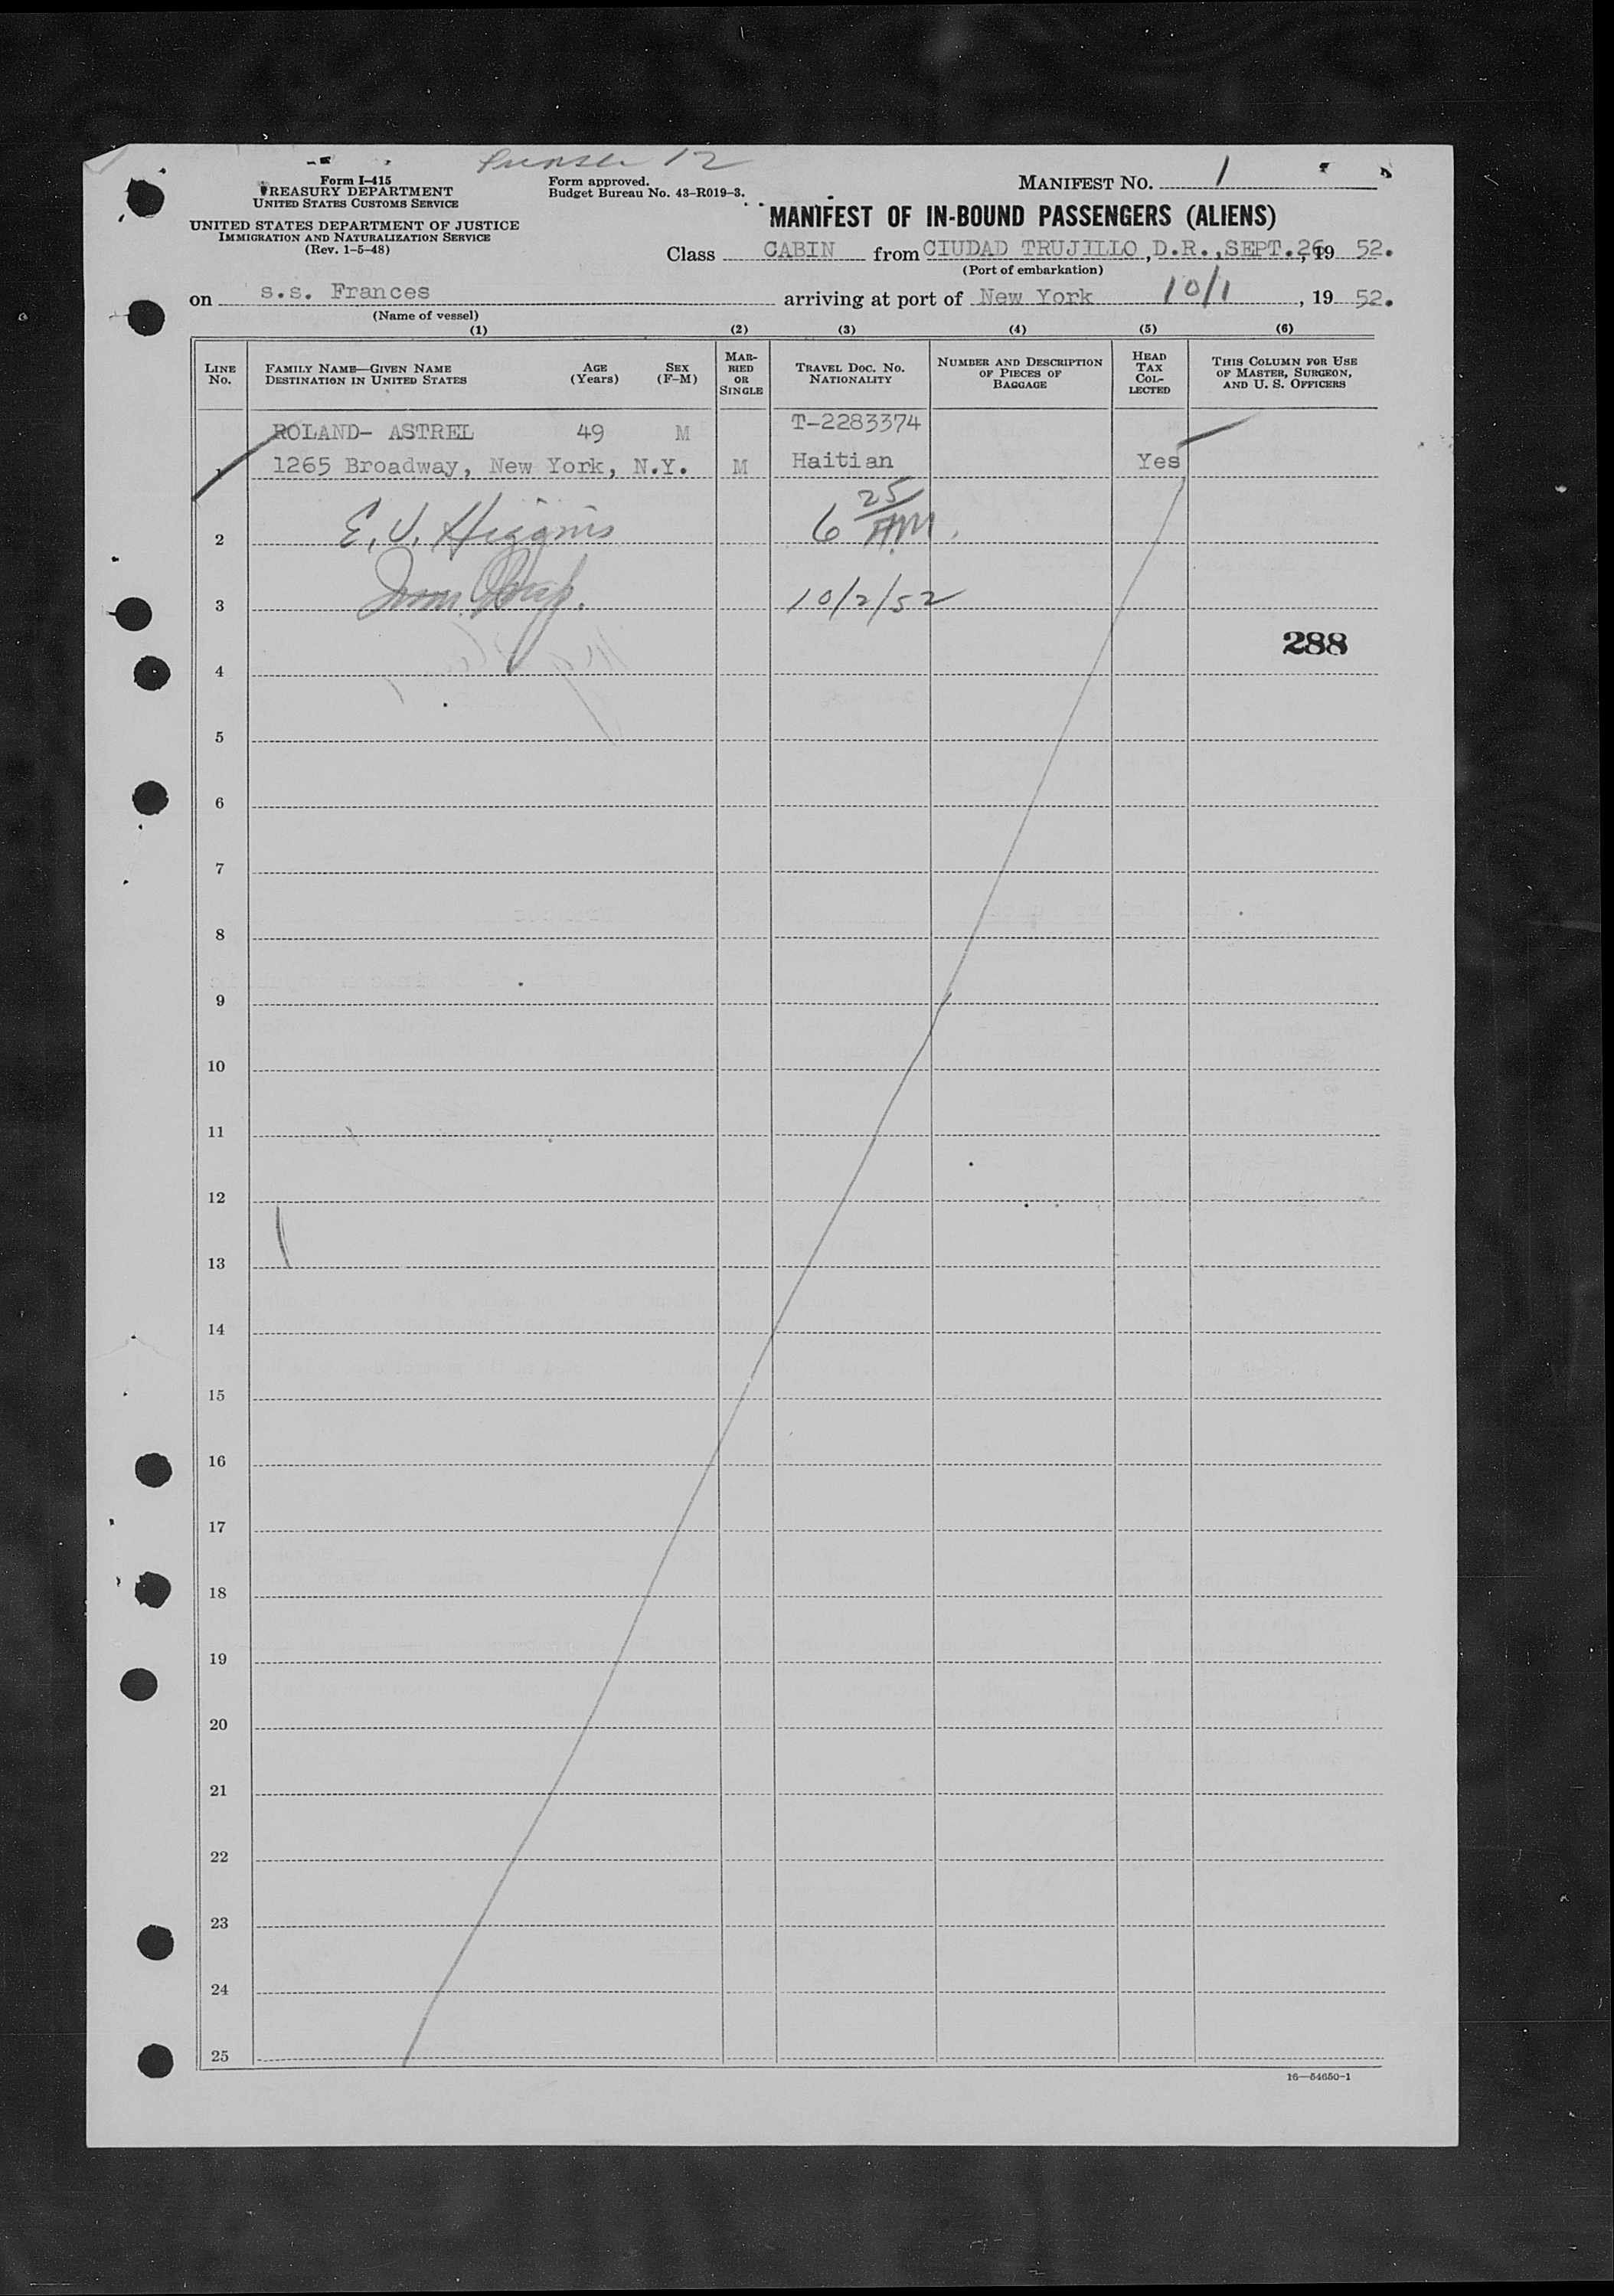 Purser 12
Form I-415
TREASURY DEPARTMENT
UNITED STATES CUSTOMS SERVICE
UNITED STATES DEPARTMENT OF JUSTICE
IMMIGRATION AND NATURALIZATION SERVICE
(Rev. 1-5-48)
Form approved.
Budget Bureau No. 43-R019-3.
MANIFEST NO. 1
MANIFEST OF IN-BOUND PASSENGERS (ALIENS)
Class CABIN from CIUDAD TRUJILLO, D.R., SEPT. 26, 19 52.
(Port of embarkation)
on s.s. Frances arriving at port of New York 10/1, 19 52.
(Name of vessel)
(1) (2) (3) (4) (5) (6)
LINE NO.
FAMILY NAME—GIVEN NAME
DESTINATION IN UNITED STATES
AGE (Years)
SEX (F-M)
MARRIED OR SINGLE
TRAVEL DOC. NO.
NATIONALITY
NUMBER AND DESCRIPTION
OF PIECES OF
BAGGAGE
HEAD
TAX
COL-
LECTED
THIS COLUMN FOR USE
OF MASTER, SURGEON,
AND U. S. OFFICERS
ROLAND- ASTREL 49 M T-2283374
1 1265 Broadway, New York, N.Y. M Haitian Yes
2 E. V. Higgins 6 25 A.M.
3 Imm. Insp. 10/2/52
288
4
5
6
7
8
9
10
11
12
13
14
15
16
17
18
19
20
21
22
23
24
25
16—54650-1